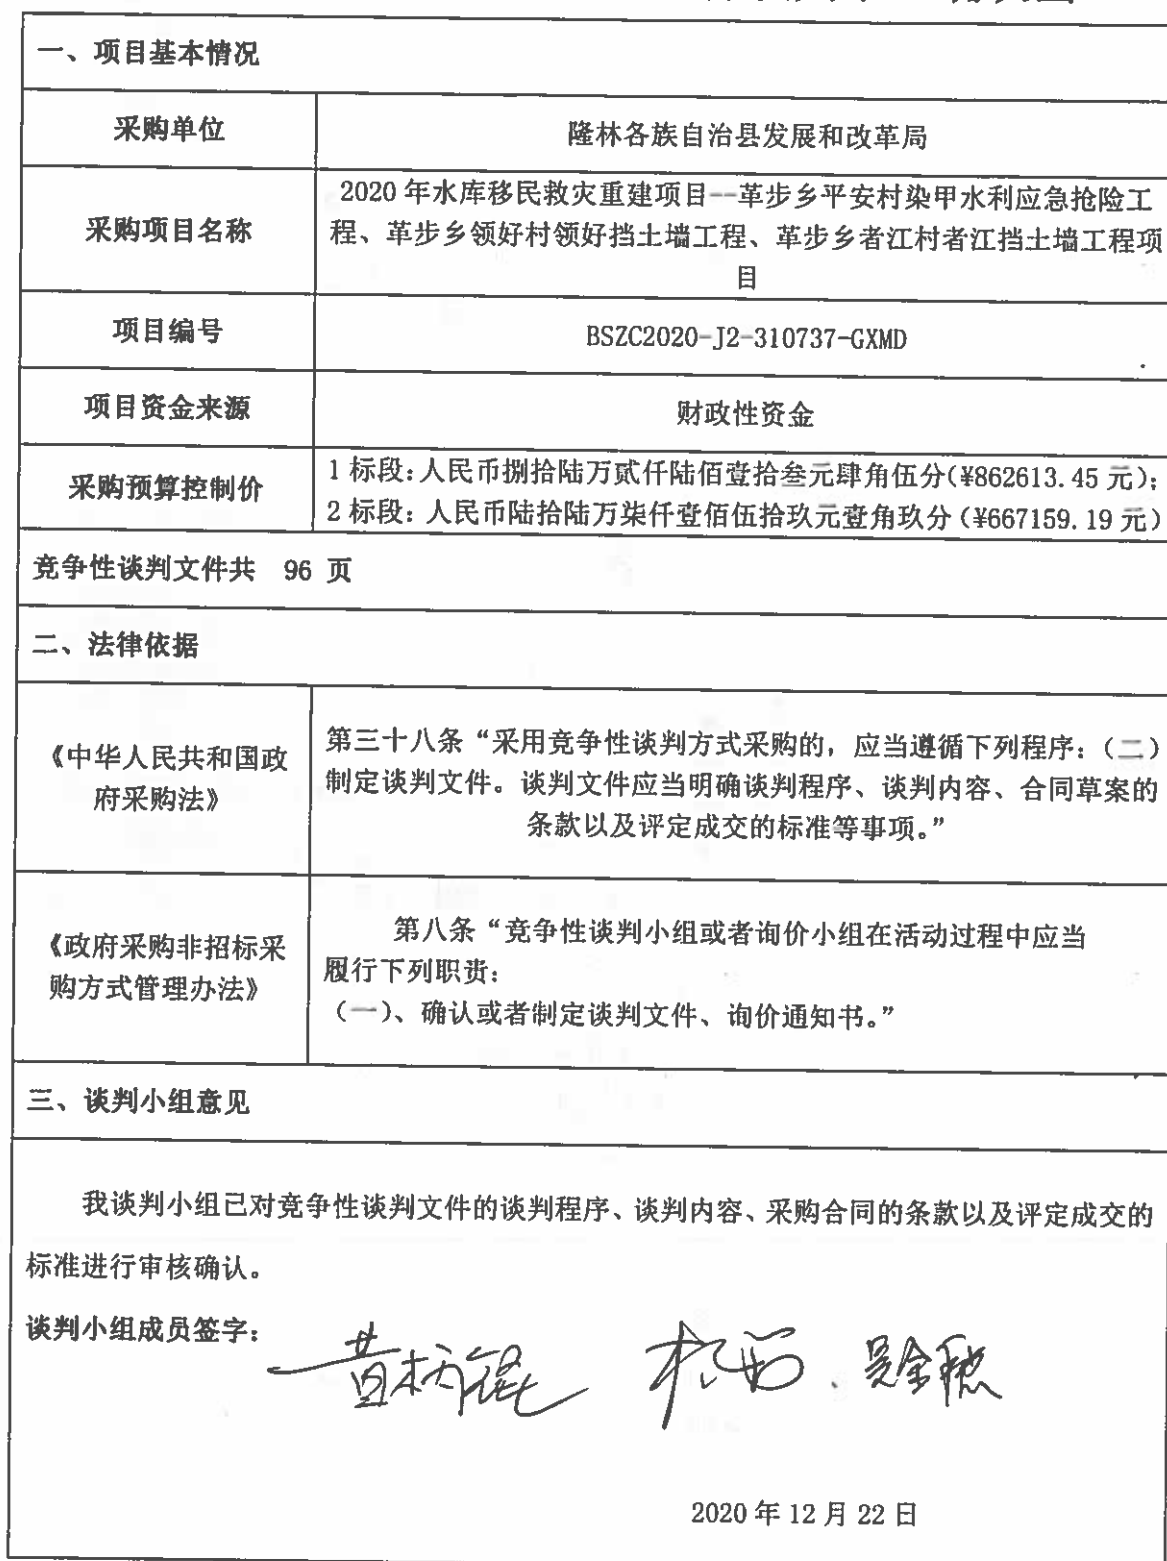 一、项目基本情况
采购单位
隆林各族自治县发展和改革局
采购项目名称
2020 年水库移民救灾重建项目--革步乡平安村染甲水利应急抢险工
程、革步乡领好村领好挡土墙工程、革步乡者江村者江挡土墙工程项
目
项目编号
BSZC2020-J2-310737-GXMD
项目资金来源
财政性资金
采购预算控制价
1 标段：人民币捌拾陆万贰仟陆佰壹拾叁元肆角伍分(¥862613.45 元)；
2 标段：人民币陆拾陆万柒仟壹佰伍拾玖元壹角玖分(¥667159.19 元)
竞争性谈判文件共 96 页
二、法律依据
《中华人民共和国政
府采购法》
第三十八条“采用竞争性谈判方式采购的，应当遵循下列程序：（二）
制定谈判文件。谈判文件应当明确谈判程序、谈判内容、合同草案的
条款以及评定成交的标准等事项。”
《政府采购非招标采
购方式管理办法》
第八条“竞争性谈判小组或者询价小组在活动过程中应当
履行下列职责：
（一）、确认或者制定谈判文件、询价通知书。”
三、谈判小组意见
我谈判小组已对竞争性谈判文件的谈判程序、谈判内容、采购合同的条款以及评定成交的
标准进行审核确认。
谈判小组成员签字：
2020 年 12 月 22 日